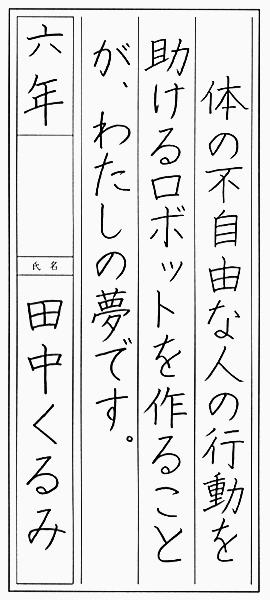 体の不自由な人の行動を
助けるロボットを作ること
が、わたしの夢です。
六年
氏名
田中くるみ